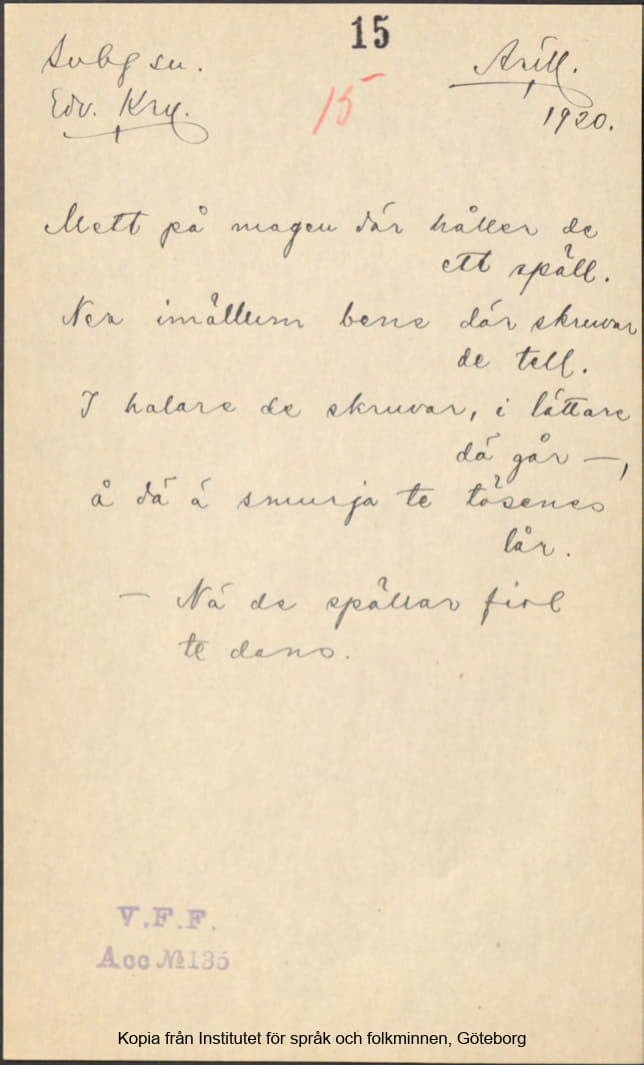 15
Svbg sn. Arill.
Edv. Kry. 15 1920.
Mett på magen där håller de
ett späll.
Ner imällum bene där skruvar
de tell.
I halare de skruvar, i lättare
dä går —,
å dä ä smurja te tösenes
lår.
— Nä de spällar fiol
te dans.
V.F.F.
Acc № 135
Kopia från Institutet för språk och folkminnen, Göteborg